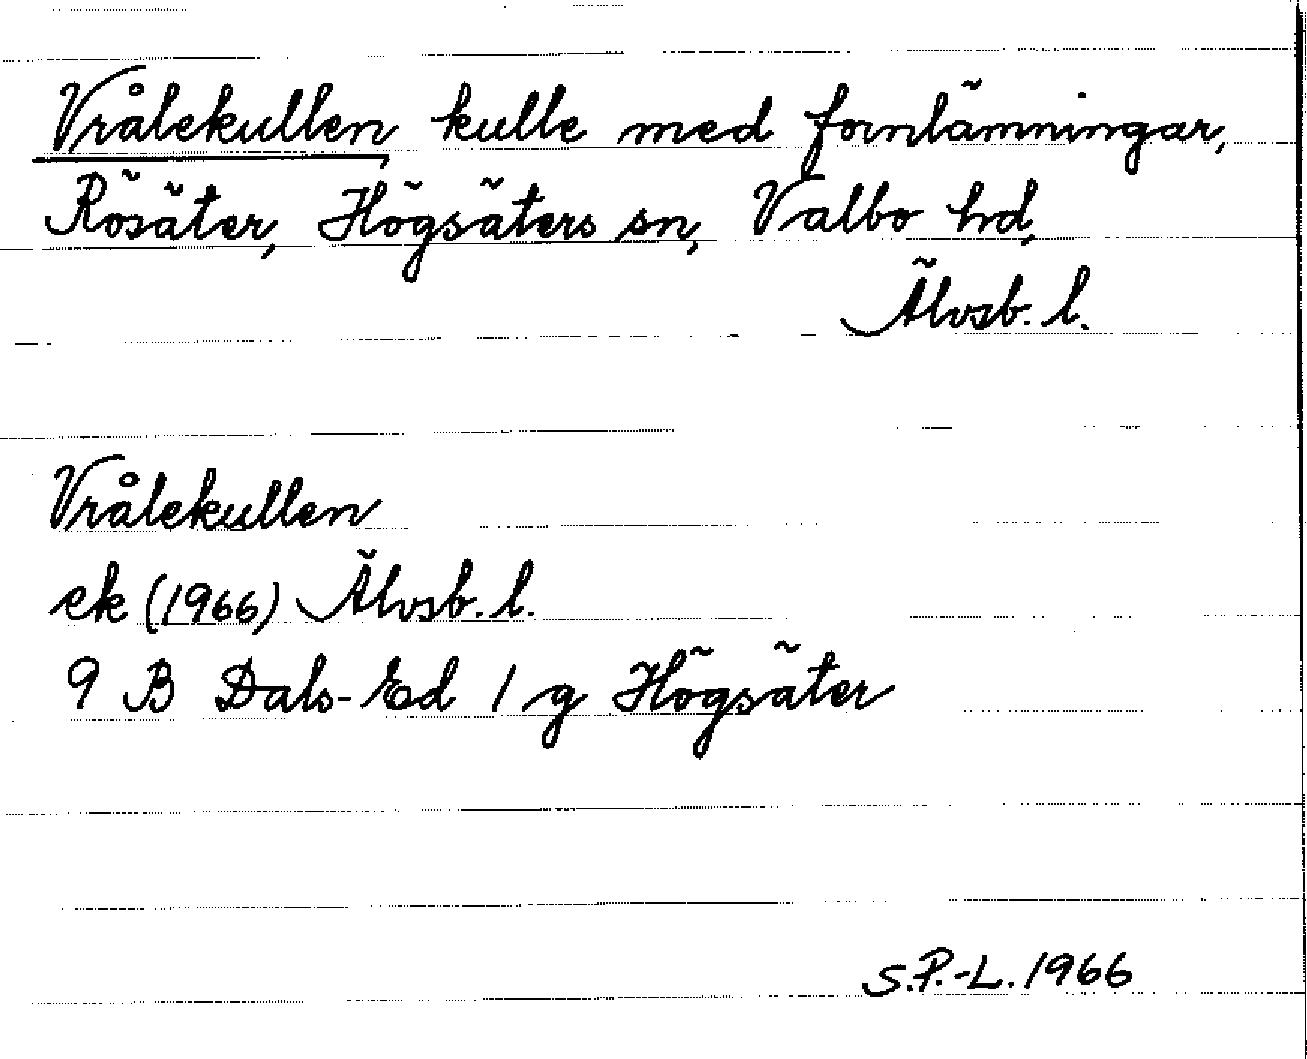 Vrålekullen, kulle med fornlämningar,
Rösäter, Högsäters sn, Valbo hd,
Älvsb. l.
Vrålekullen
ek (1966) Älvsb. l.
9 B Dals-Ed 1 g Högsäter
S.P.-L. 1966